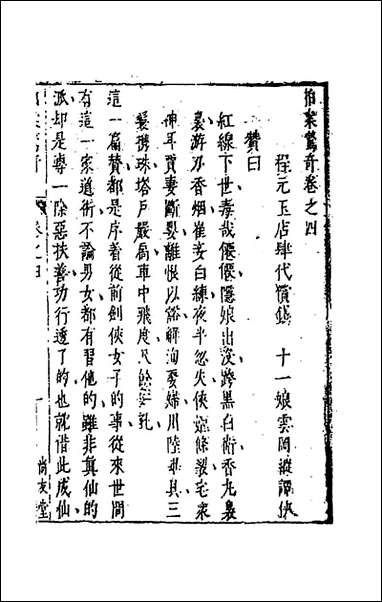 拍案驚奇卷之四
程元玉店肆代償錢　十一娘雲岡縱譚俠
贊曰
紅線下世毒哉僊僊隱娘出沒跨黑白衛香丸裊
裊游刃香烟崔妾白練夜半忽失俠嫗條裂宅衆
神耳賈妻斷嬰離恨以豁解洵娶婦川陸畢具三
鬟携珠塔戶嚴扃車中飛度尺餘一孔
這一篇贊都是序着從前劍俠女子的事從來世間
有這一家道術不論男女都有習他的雖非真仙的
派却是專一除惡扶善功行透了的也就借此成仙
卷之四
尚友堂